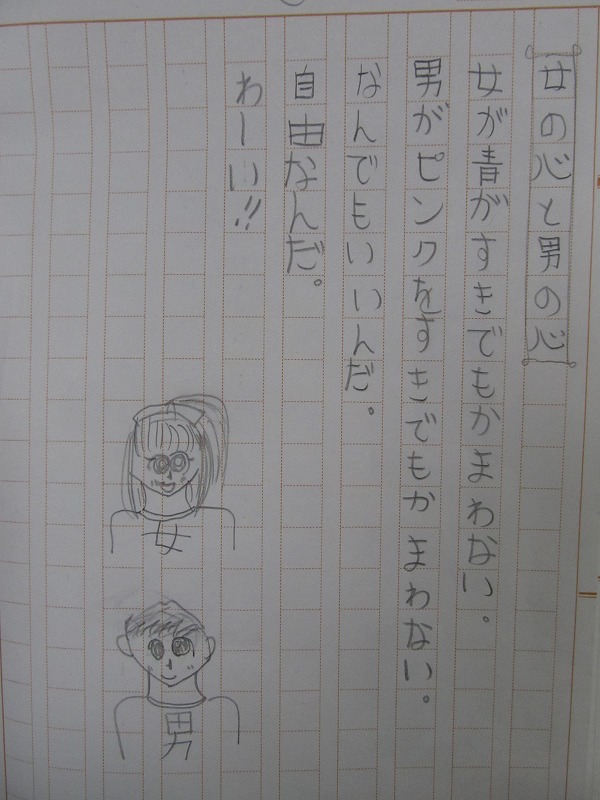 女の心と男の心
女が青がすきでもかまわない。
男がピンクをすきでもかまわない。
なんでもいいんだ。
自由なんだ。
わーい!!
女
男